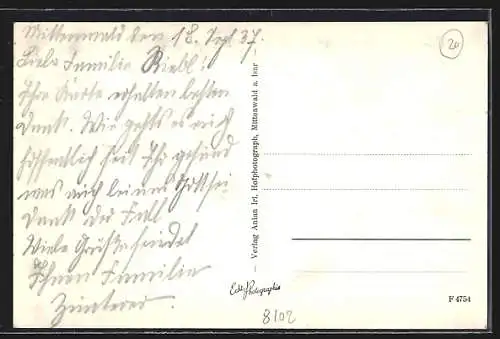 Mittenwald den 18. Sept 37.
Liebe Familie Riedl!
Ihre Karte erhalten besten
Dank. Wie gehts euch
hoffentlich seit Ihr gesund
was auch bei uns Gottsei
Dank der Fall
Viele Grüße sendet
Ihnen Familie
20
– Verlag Anian Irl, Hofphotograph, Mittenwald a. Isar
Echte Photographie
F 4754
8102